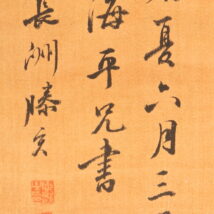 夏六月三
海平兄書
長洲滕亥